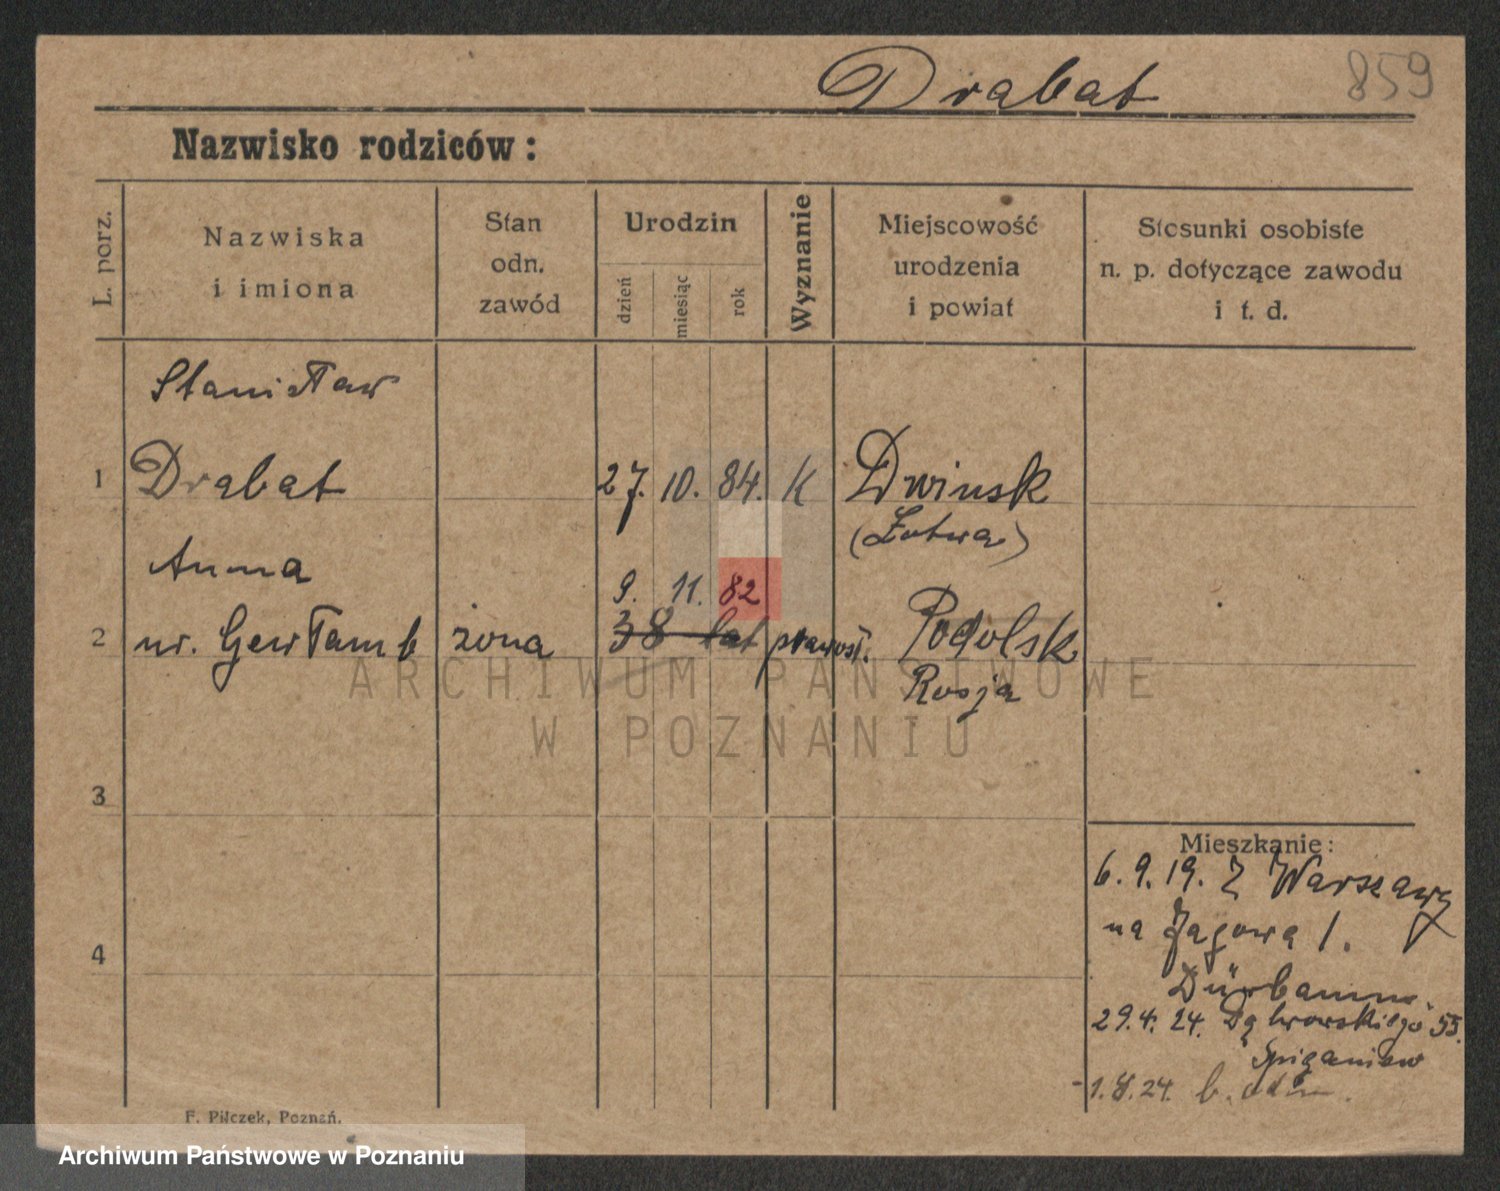 Drabat 859
Nazwisko rodziców:
L. porz.
Nazwiska
i imiona
Stan
odn.
zawód
Urodzin
dzień
miesiąc
rok
Wyznanie
Miejscowość
urodzenia
i powiat
Stosunki osobiste
n. p. dotyczące zawodu
i t. d.
Stanisław
1 Drabat 27. 10. 84. K Dwinsk
(Łotwa)
Anna
9. 11. 82
2 ur. Gewłamb żona 38 lat prawosł. Podolsk
Rosja
3
4
Mieszkanie:
6. 9. 19. Z Warszawy
na Jagową 1.
29. 4. 24. Dąbrowskiego 55.
1. 8. 24.
F. Pilczek, Poznań.
ARCHIWUM PAŃSTWOWE
W POZNANIU
Archiwum Państwowe w Poznaniu